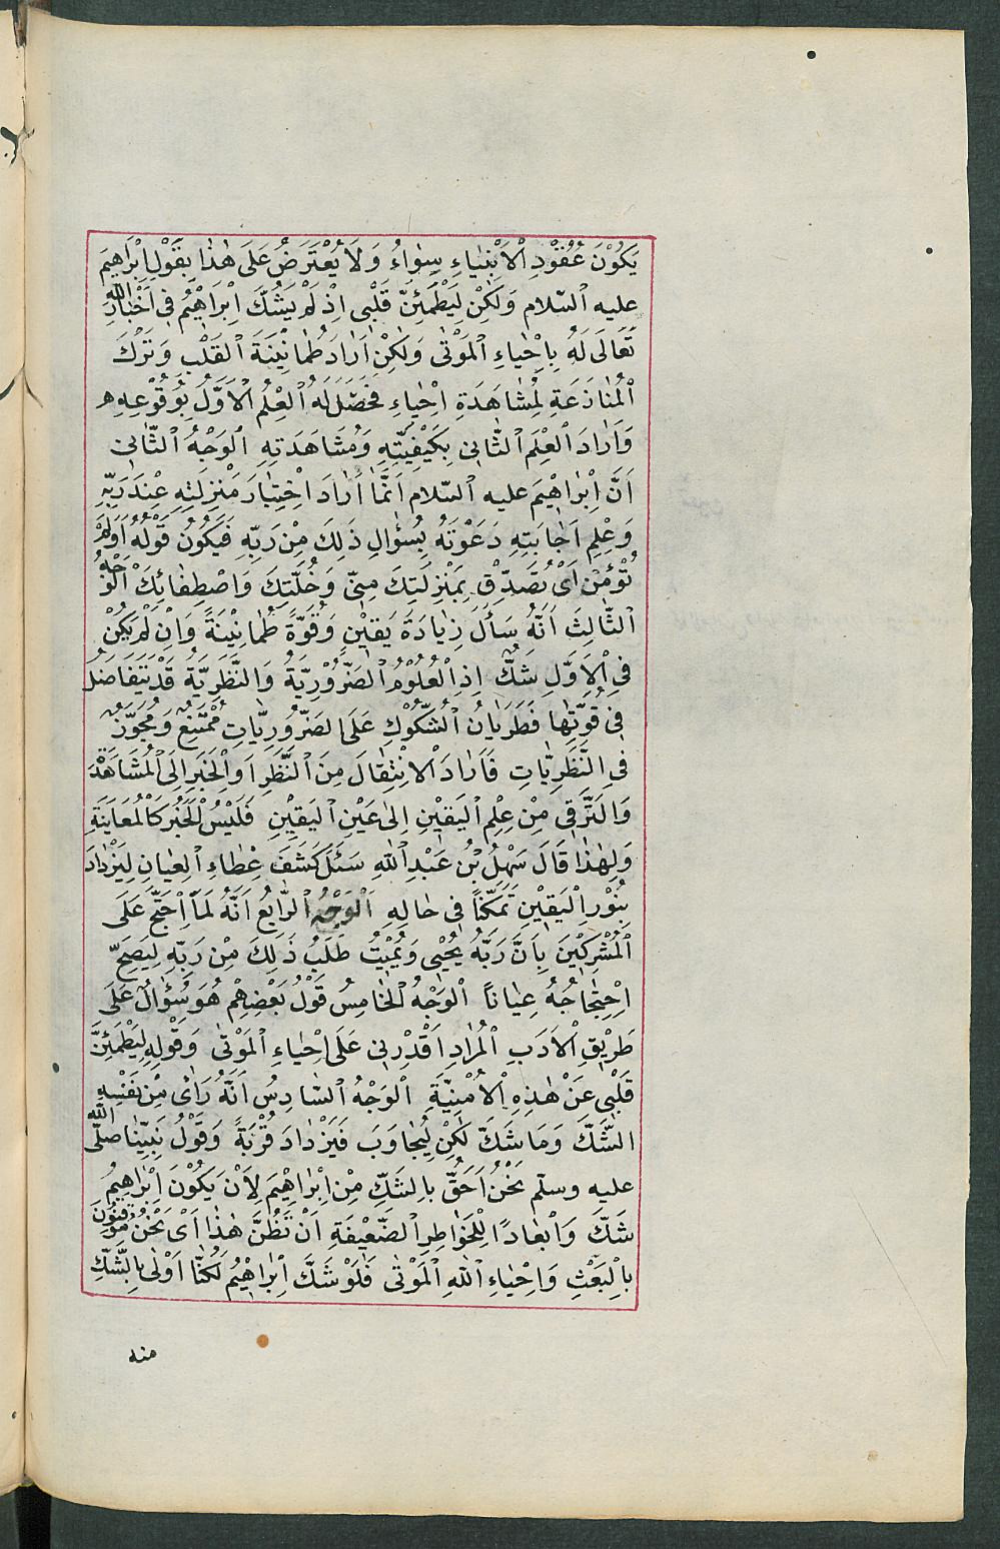 يَكُوْنَ عُقُوْدِ الْاَنْبِيَاءِ سِوٰاءُ وَلَا يُعْتَرَضُ عَلَى هٰذَا بِقَوْلِ اِبْرَاهِيْمَ
عليه السّلام وَلٰكِنْ لِيَطْمَئِنَّ قَلْبِى اِذْ لَمْ يَشُكَّ اِبْرَاهِيْمُ فِى اَخْبَارِ اللّٰه
تَعَالَى لَهُ بِاِحْيٰاءِ الْمَوْتٰى وَلٰكِنْ اَرٰادَ طُمَانِيْنَةَ الْقَلْبِ وَتَرْكَ
الْمُنٰازَعَةِ لِمُشٰاهَدَةِ اِحْيٰاءِ فَحَصَلَ لَهُ الْعِلْمُ الْاَوَّلُ بِوُقُوْعِهِ
وَاَرٰادَ الْعِلْمَ الثّٰانِى بِكَيْفِيَّتِهِ وَمُشَاهَدَتِهِ الْوَجْهُ الثّٰانِى
اَنَّ اِبْرٰاهِيْمَ عليه السّلام اَنَّمَا اَرٰادَ اخْتِبَارَ مَنْزِلَتِهِ عِنْدَ رَبِّهِ
وَعِلْمِ اَجٰابَتِهِ دَعْوَتَهُ بِسُؤٰالِ ذَلِكَ مِنْ رَبِّهِ فَيَكُوْنُ قَوْلُهُ اَوَلَمْ
تُؤْمِنْ اَىْ تُصَدِّقْ بِمَنْزِلَتِكَ مِنّى وَخُلَّتِكَ وَاصْطِفٰائِكَ الْوَجْهُ
الثّٰالِثَ اَنَّهُ سَأَلَ زِيٰادَةَ يَقِيْنٍ وَقُوَّةً طُمٰانِيْنَةً وَاِنْ لَمْ يَكُنْ
فِى الْاَوَّلِ شَكٌّ اِذِ الْعُلُوْمُ الضَّرُوْرِيَّةُ وَالنَّظَرِيَّةُ قَدْ تَتَفَاضَلُ
فِى قُوَّتِهٰا فَطَرَيٰانُ الشُّكُوْكِ عَلَى الضَّرُورِيّٰاتِ مُمْتَنِعٌ وَمُجَوَّزٌ
فِى النَّظَرِيّٰاتِ فَاَرٰادَ الْاِنْتِقٰالَ مِنَ النَّظَرِ اَوِ الْخَبَرِ اِلَى الْمُشَاهَدَةِ
وَالتَّرَقِّى مِنْ عِلْمِ الْيَقِيْنِ اِلٰى عَيْنِ الْيَقِيْنِ فَلَيْسَ الْخَبَرُ كَالْمُعَايَنَةِ
وَلِهٰذٰا قَالَ سَهْلُ بْنُ عَبْدِ اللّٰهِ سَئَلَ كَشْفَ غِطٰاءِ الْعِيٰانِ لِيَزْدٰادَ
بِنُوْرِ الْيَقِيْنِ تَمَكّنًا فِى حٰالِهِ اَلْوَجْهُ الرّٰابِعُ اَنَّهُ لَمَّا اِحْتَجَّ عَلَى
الْمُشْرِكِيْنَ بِاَنَّ رَبَّهُ يُحْيِى وَيُمِيْتُ طَلَبُ ذَلِكَ مِنْ رَبِّهِ لِيَصِحَّ
اِحْتِجٰاجُهُ عِيٰانًا الْوَجْهُ الْخٰامِسُ قَوْلُ بَعْضِهِمْ هُوَ سُؤٰالٌ عَلَى
طَرِيْقِ الْاَدَبِ الْمُرٰادِ اَقْدِرْنِى عَلَى اِحْيٰاءِ الْمَوْتٰى وَقَوْلِهِ لِيَطْمَئِنَّ
قَلْبِى عَنْ هٰذِهِ الْاُمْنِيَّةِ الْوَجْهُ السّٰادِسُ اَنَّهُ رَاٰى مِنْ نَفْسِهِ
الشَّكَّ وَمَا شَكَّ لٰكِنْ لِيُجَاوَبَ فَيَزْدٰادَ قُرْبَةً وَقَوْلُ نَبِيِّنٰا صلّى اللّٰه
عليه وسلّم نَحْنُ اَحَقُّ بِالشَّكِّ مِنْ اِبْرٰاهِيْمَ لِاَنْ يَكُوْنَ اِبْرٰاهِيْمُ
شَكَّ وَاَبْعٰادًا لِلْخَوٰاطِرِ الضَّعِيْفَةِ اَنْ تَظُنَّ هٰذٰا اَىْ نَحْنُ مُوْقِنُوْنَ
بِالْبَعْثِ وَاِحْيٰاءِ اللّٰهِ الْمَوْتٰى فَلَوْ شَكَّ اِبْرٰاهِيْمُ لَكُنّٰا اَوْلٰى بِالشَّكِّ
منه